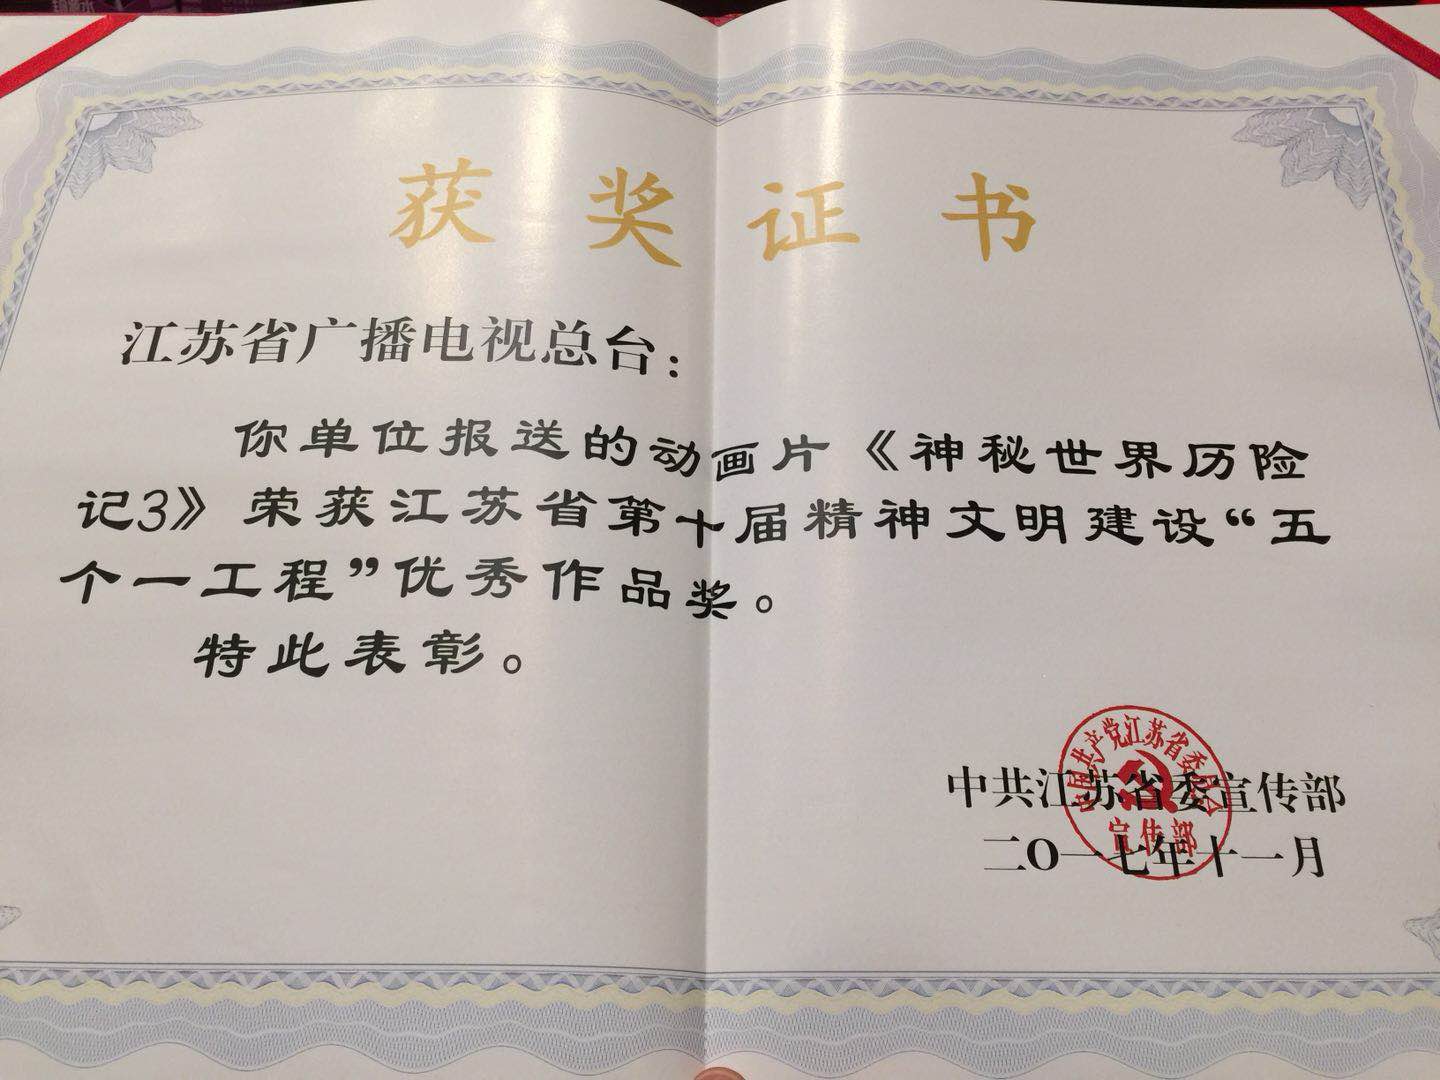 获奖证书
江苏省广播电视总台：
你单位报送的动画片《神秘世界历险
记3》荣获江苏省第十届精神文明建设“五
个一工程”优秀作品奖。
特此表彰。
中共江苏省委宣传部
二〇一七年十一月
中国共产党江苏省委员会
宣传部